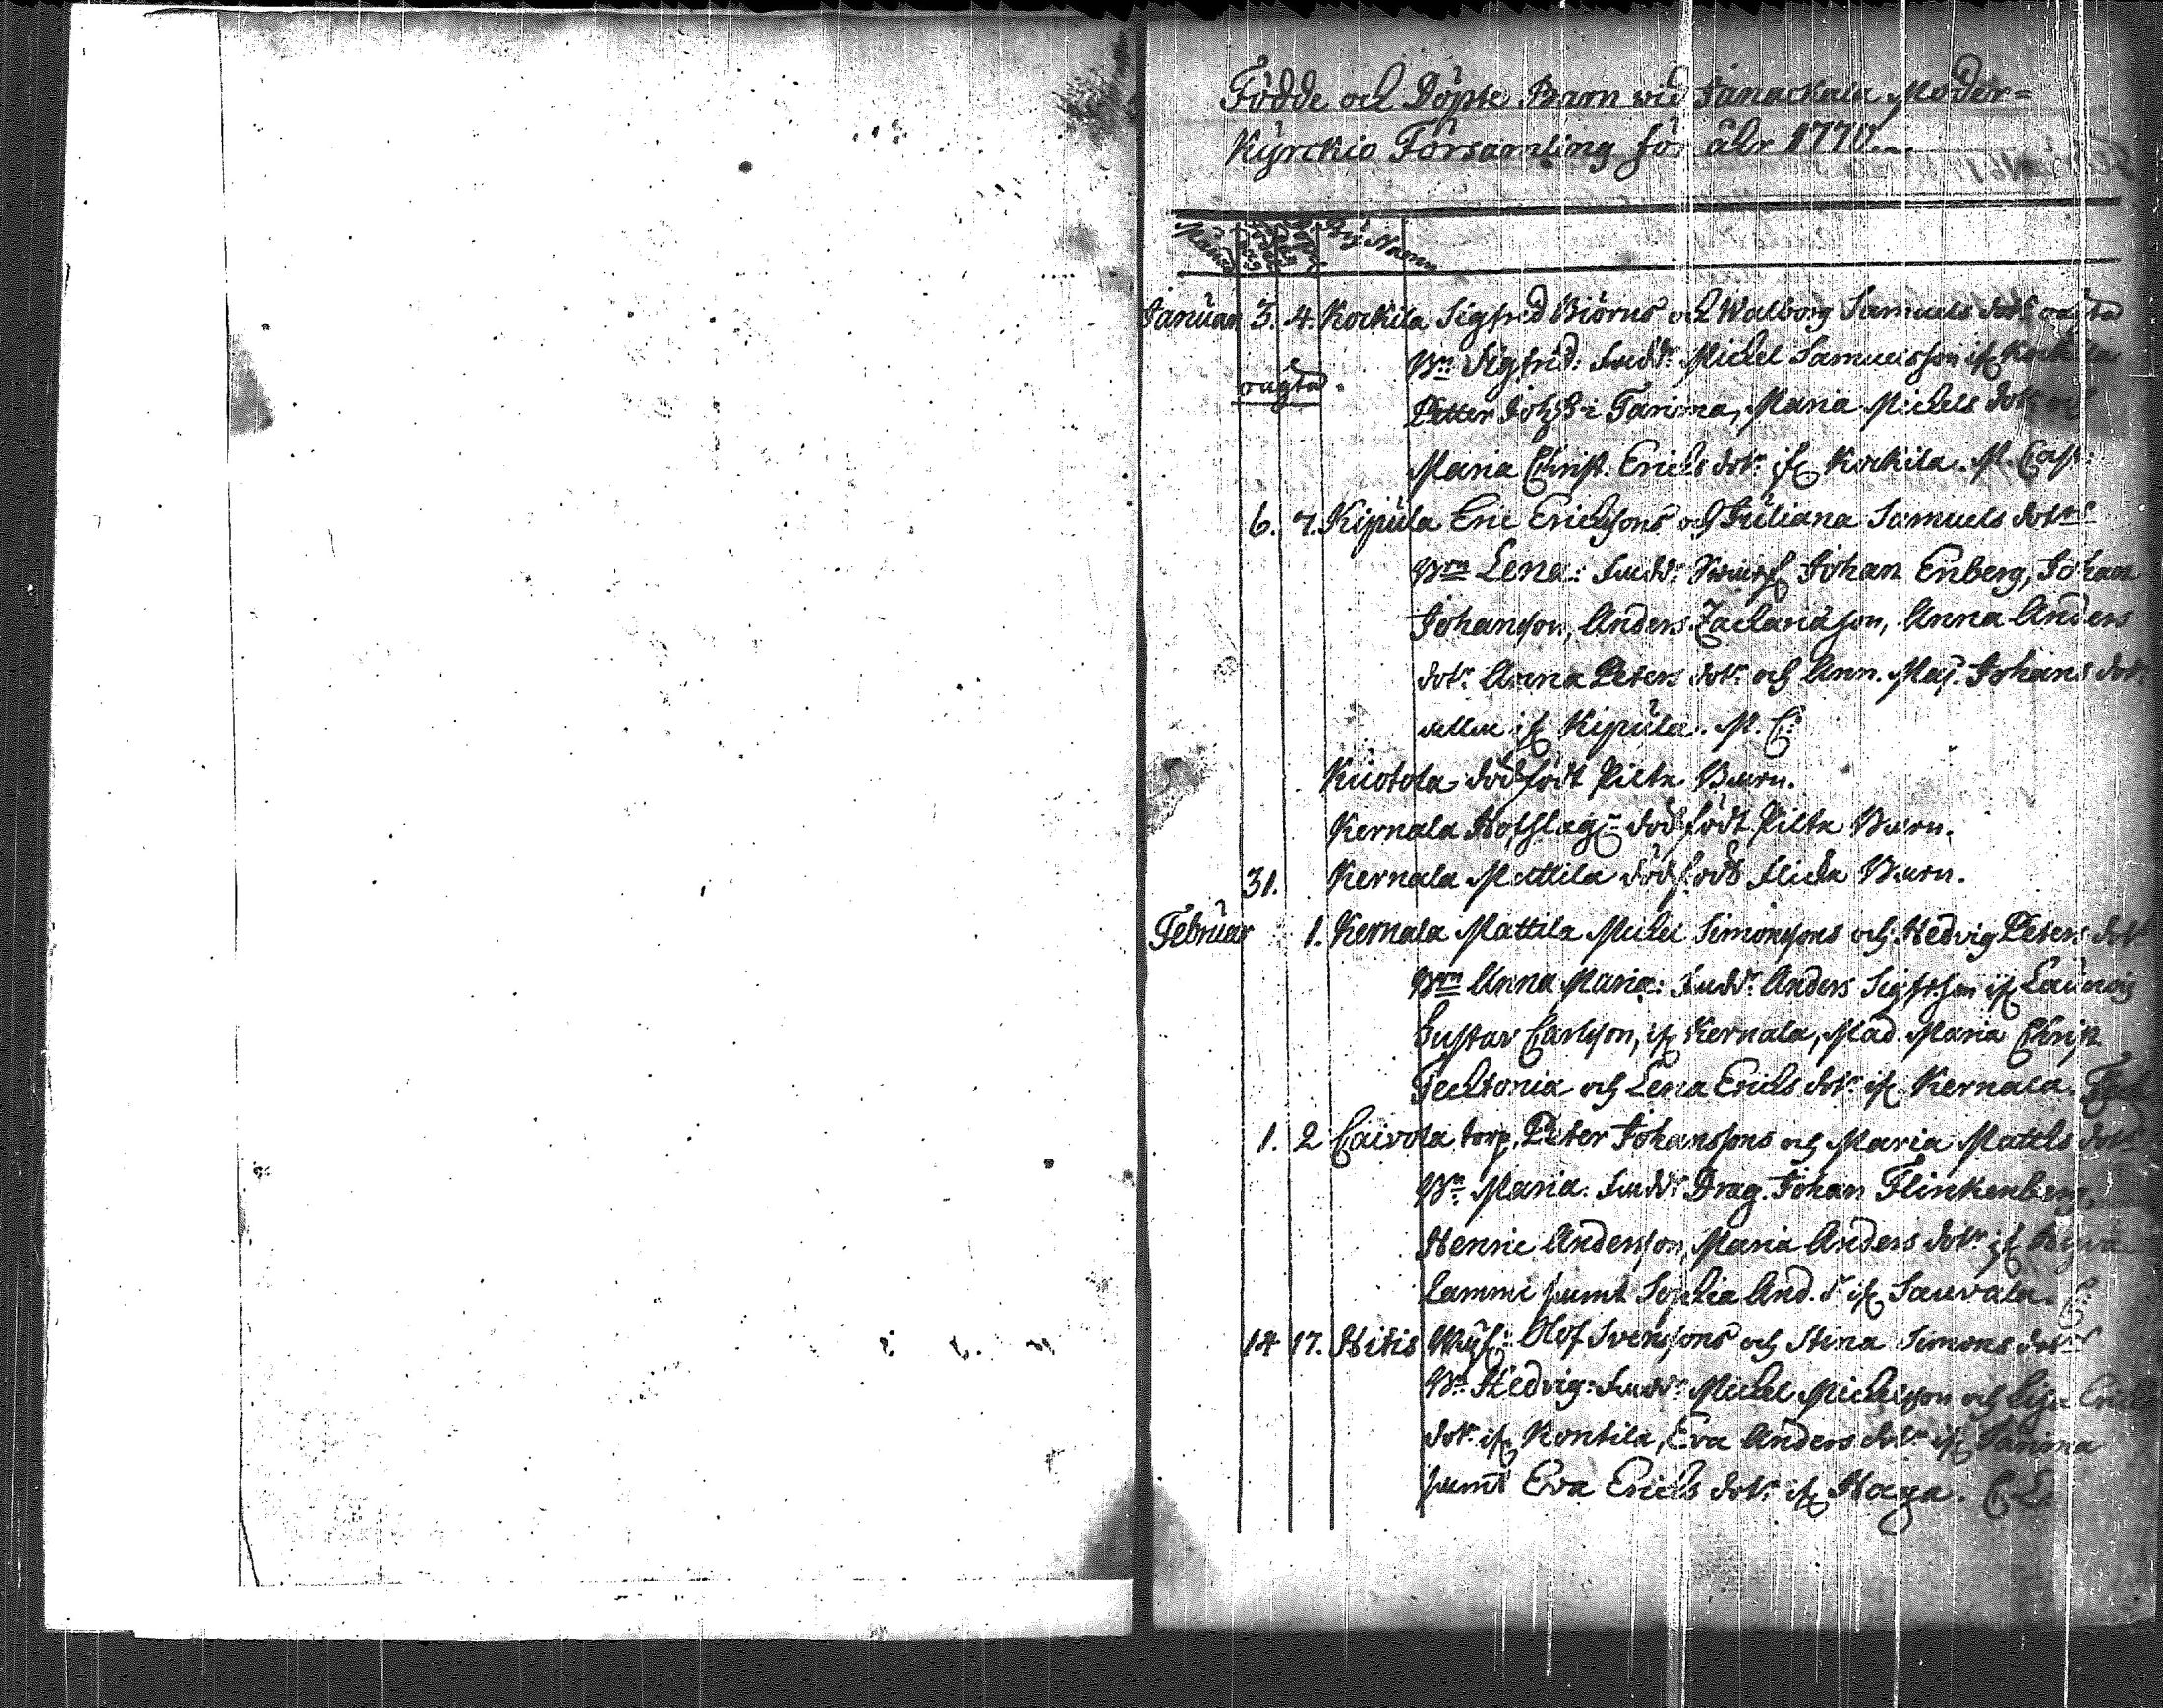 Födde och Döpte Barn vid Janackala Moder=
Kyrckio Församling för åhr 1770.
Månad By Namn
Januar 3. 4. Kockila Sigfred Biörns och Walborg Samuels dotrs oägta
Bn Sigfrid: Fadd: Michel Samuelsson if Kockila
oägta.
Petter Joh: i Tarinma, Maria Michels dotr och
Maria Christ. Erichs dotr if Kockila. M. Cast.
6. 7. Kipula Eric Erichsons och Juliana Samuels dotrs
Brn Lena: Fadd: Johan Enberg, Johan
Johanson, Anders Zachariason, Anna Anders
dotr. Anna Peters dotr. och Ann. Maj. Johans dotr.
alla if Kipula. M. C:
Kuotola dödfödt Pilte Barn.
Kernala dödfödt Pilte Barn.
31. Kernala Mattila dödfödt Flicke Barn.
Februar 1. Kernala Mattila Michel Simonsons och Hedvig Peters dotr
Brn Anna Maria: Fadd: Anders Sigfr.son if
Gustav Carlson, if Kernala, Mad. Maria Christ.
Techtonia och Lena Erichs dotr. if Kernala.
1. 2 Caivola torp, Peter Johanssons och Maria Matts dotrs
Bn Maria. Fadd: Drag. Johan Flinkenberg,
Henric Andersson, Maria Anders dotr. if Hyva
lammi samt Sophia And. d. if Sauvala. C:
14 17. Hitis Olof Svensons och Stina Simons dotrs
Bn Hedvig: Fadd: Michel Michelson och Lisa Erichs
dotr. if Kontila, Eva Anders dotr if Tarinma
samt Eva Erichs dotr. if Haga. C. L.